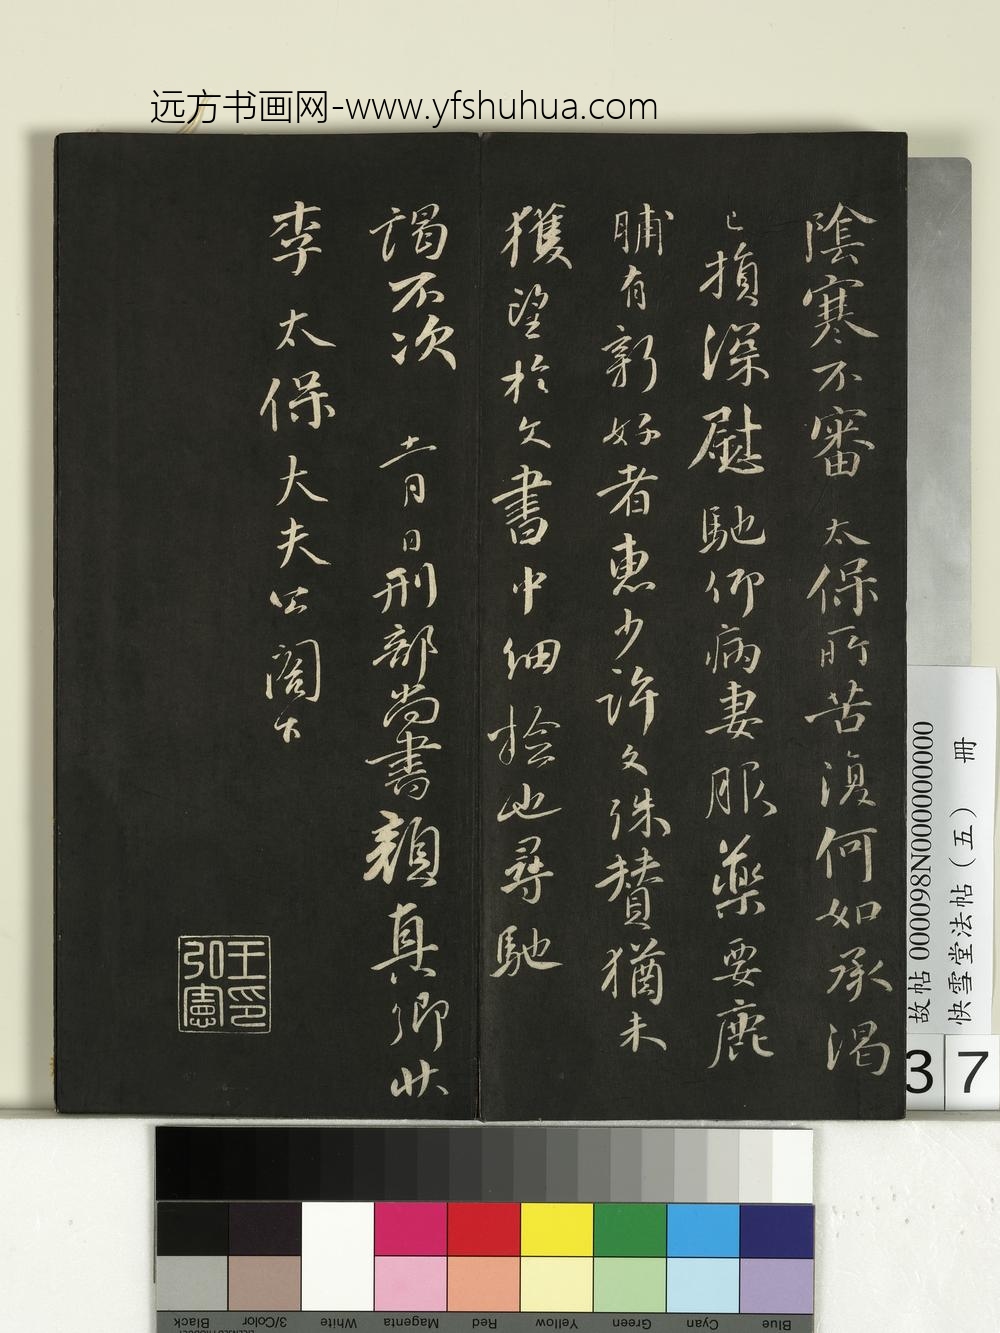 远方书画网-www.yfshuhua.com
陰寒不審太保所苦復何如承渴
已損深慰馳仰病妻服藥要鹿
脯有新好者惠少許文殊贊猶未
獲望於文書中細撿也尋馳
謁不次 十一月日刑部尚書顏真卿狀
李太保大夫公閣下
王印
弘憲
故帖 000098N000000000
快雪堂法帖（五） 冊
37
Blue Cyan Green Yellow Red Magenta White 3/Color Black